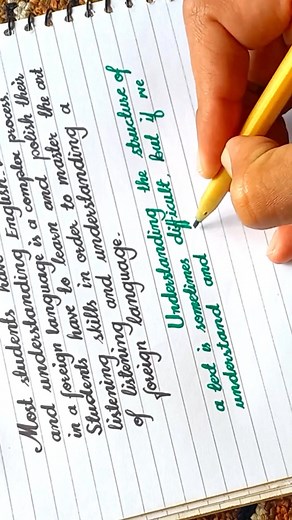 Most students have
and understanding English.
in a foreign language is a complex process.
Students have to learn and polish their
listening skills in order to master the art
of listening and understanding a
foreign language.
Understanding the structure of
a text is sometimes difficult, but if we
understand and